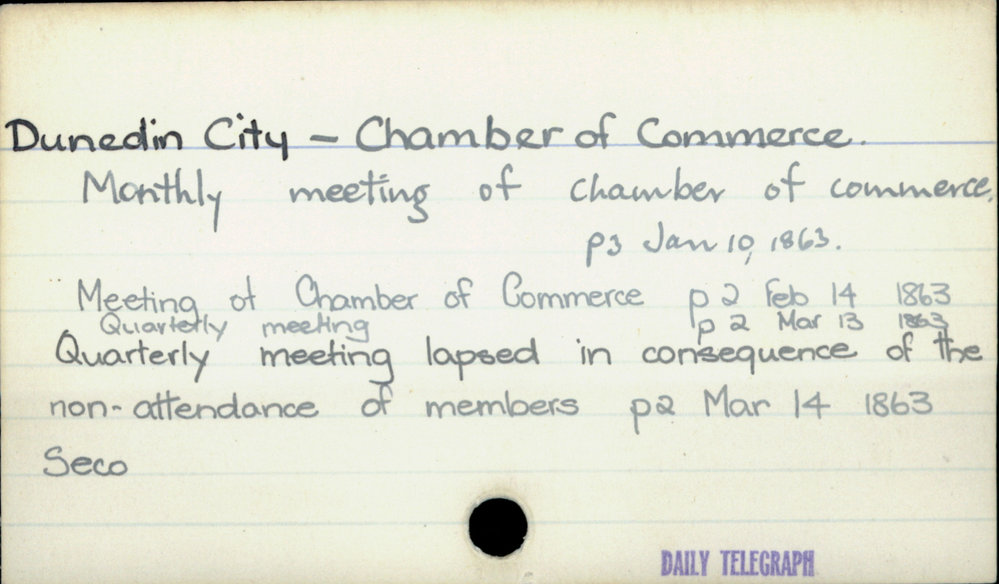 Dunedin City - Chamber of Commerce.
Monthly meeting of chamber of commerce.
p3 Jan 10, 1863.
Meeting of Chamber of Commerce p 2 Feb 14 1863
Quarterly meeting p 2 Mar 13 1863
Quarterly meeting lapsed in consequence of the
non-attendance of members p2 Mar 14 1863
Seco
DAILY TELEGRAPH